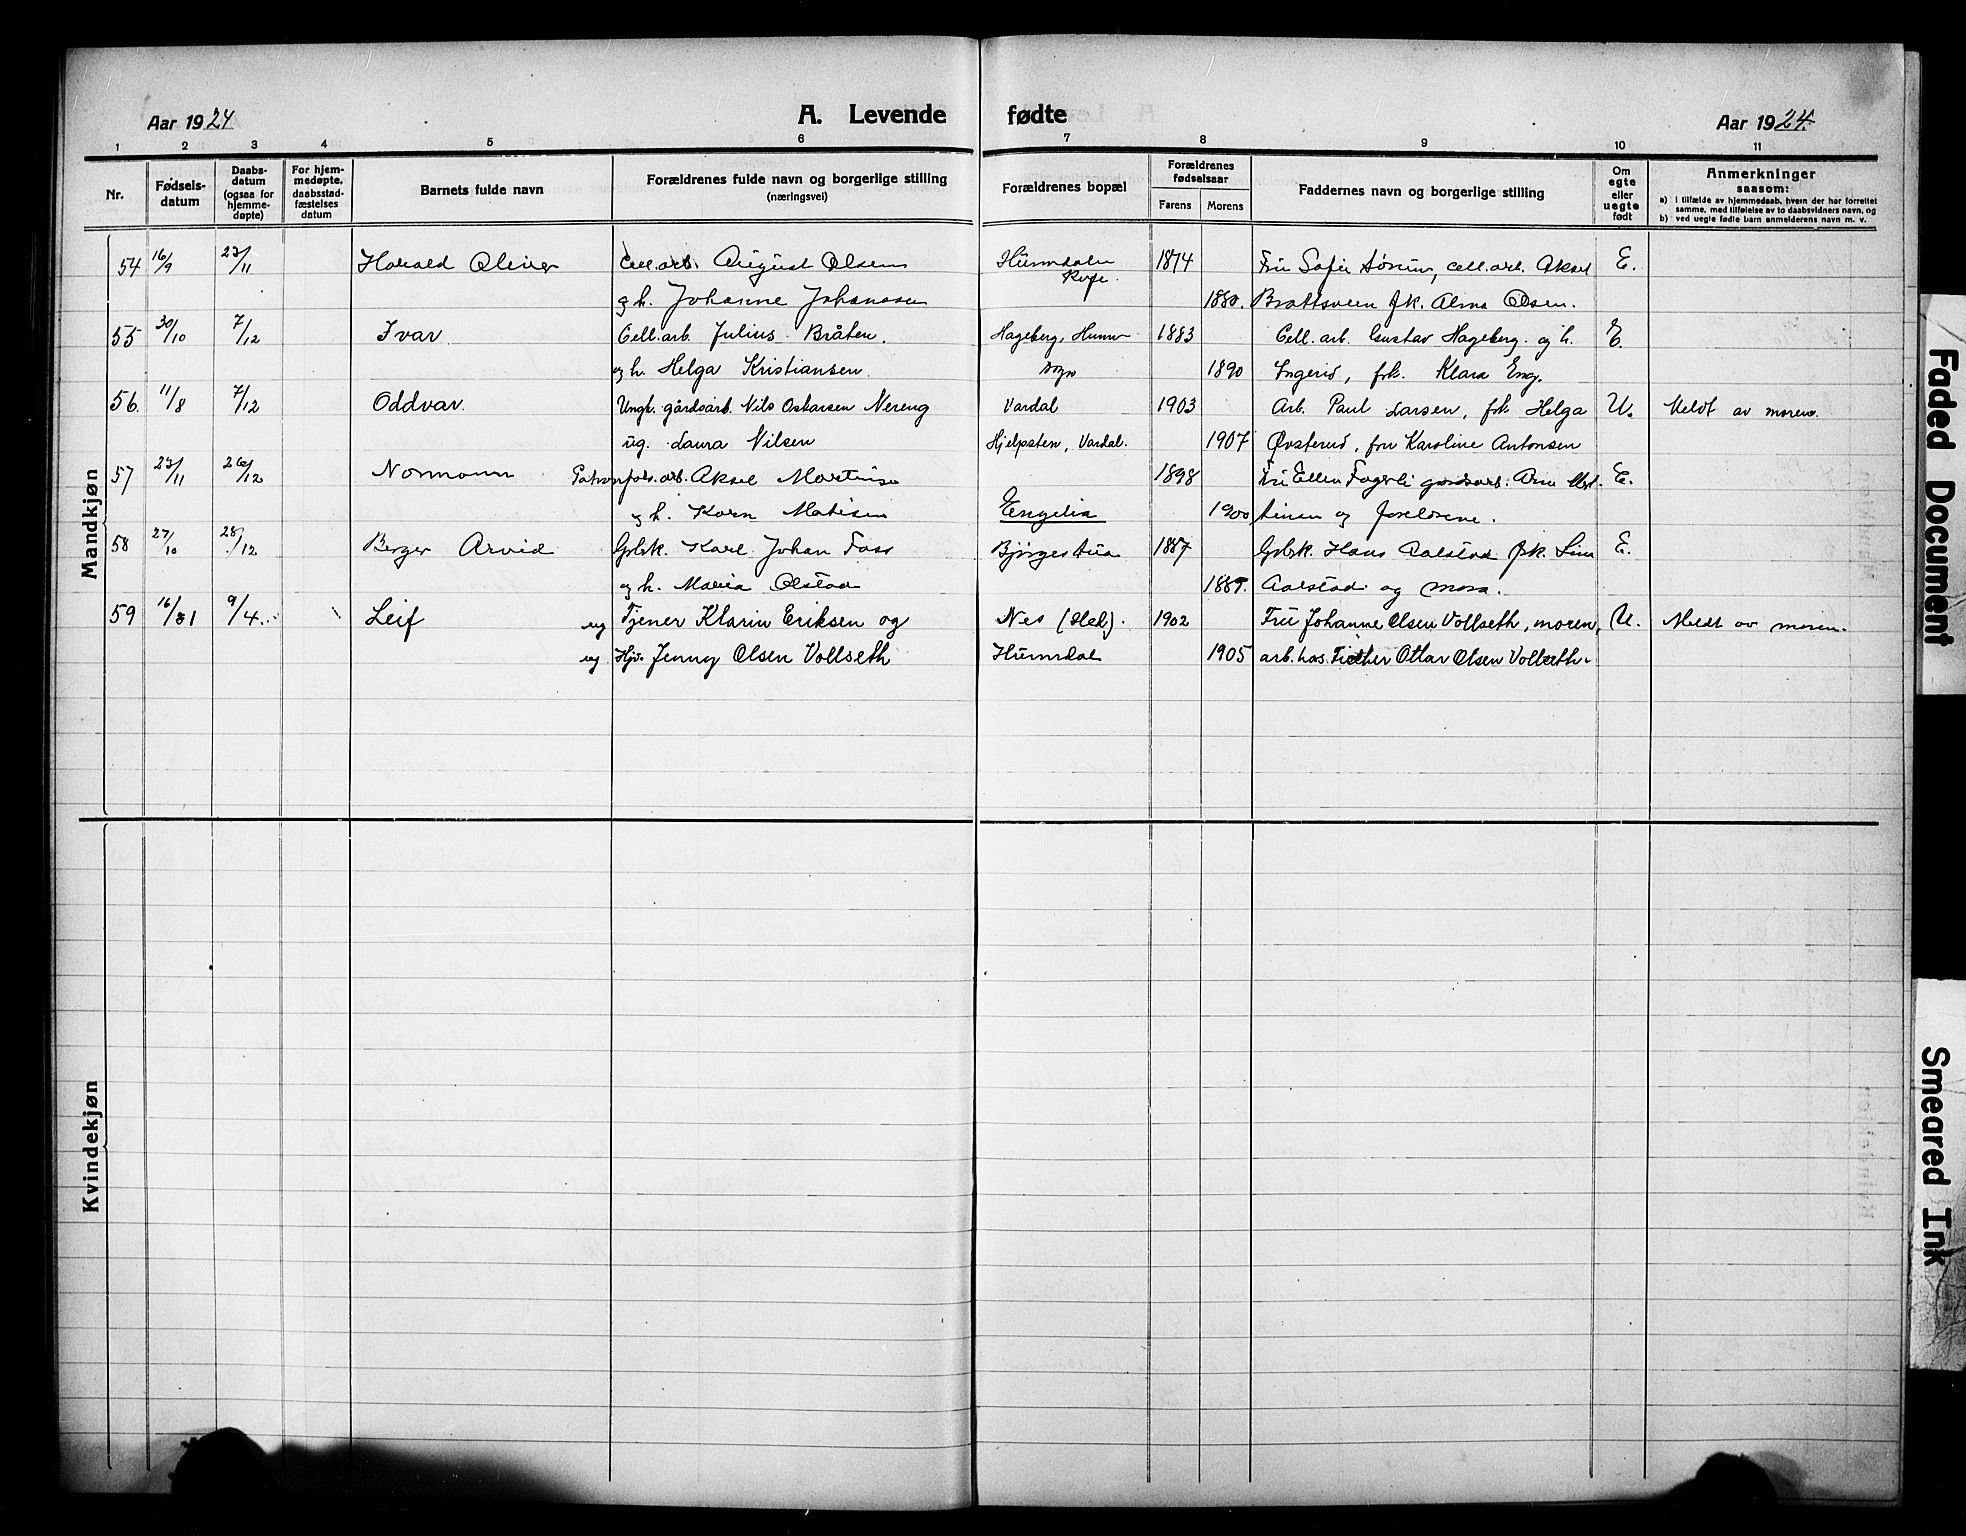 Aar 1924
A. Levende fødte
Aar 1924.
1 2 3 4 5 6 7 8 9 10 11
Nr.
Fødsels-
datum
Daabs-
datum
(ogsaa for
hjemme-
døpte)
For hjem-
medøpte,
daabsstad-
fæstelses
datum
Barnets fulde navn
Forældrenes fulde navn og borgerlige stilling
(næringsvei)
Forældrenes bopæl
Forældrenes
fødselsaar
Farens Morens
Faddernes navn og borgerlige stilling
Om
egte
eller
uegte
født
Anmerkninger
saasom:
a) i tilfælde av hjemmedaab, hvem der har forrettet
samme, med tilføielse av to daabsvidners navn, og
b) ved uegte fødte barn anmelderens navn m. v.
Mandkjøn
54 16/9 23/11 Harald Oliver Cell.arb. August Olsen Hunndalen 1874 Fru Sofie, cell.arb. Aksel E.
og h. Johanne Johanssen 1880. Brattsveen frk. Alma Olsen.
55 30/10 7/12 Ivar Cell.arb. Julius Bråten. Hageberg, Hunn 1883 Cell. arb. Gustav Hageberg og h. E.
og h. Helga Kristiansen. sogn 1890 Ingerid, frk. Klara Eng.
56. 11/8 7/12 Oddvar. Ungk. gårdsarb. Nils Oskarsen Nereng Vardal 1903 Arb. Paul Larsen, frk Helga U. Meldt av moren.
ug. Laura Nilsen Hjelpsten, Vardal. 1907 Øvsterud, fru Karoline Antonsen
57 23/11 26/12 Normann arb. Aksel Martinsen 1898 Fru Ellen Fagerli gardsarb. Arne E.
og h. Karen Matisen Engelia 1900 og foreldrene.
58 27/10 28/12 Berger Arvid Gbk. Karl Johan Foss Bjørgestua 1887 Gbk. Hans Aalstad frk. E.
og h. Maria Olstad 1889. Aalstad og mora.
59 16/1 9/4 Leif ug Tjener Klarin Eriksen og Nes (Hed). 1902 Fru Johanne Olsen Vollseth, moren, U. Meldt av moren.
ug Hjv. Jenny Olsen Vollseth Hunndal 1905 arb. Ottar Olsen Vollseth.
Kvindekjøn
Faded Document
Smeared Ink